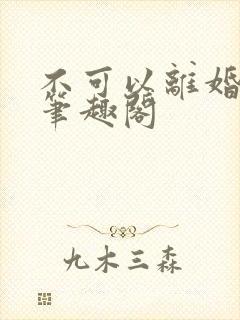 不可以離婚
筆趣閣
九木三森